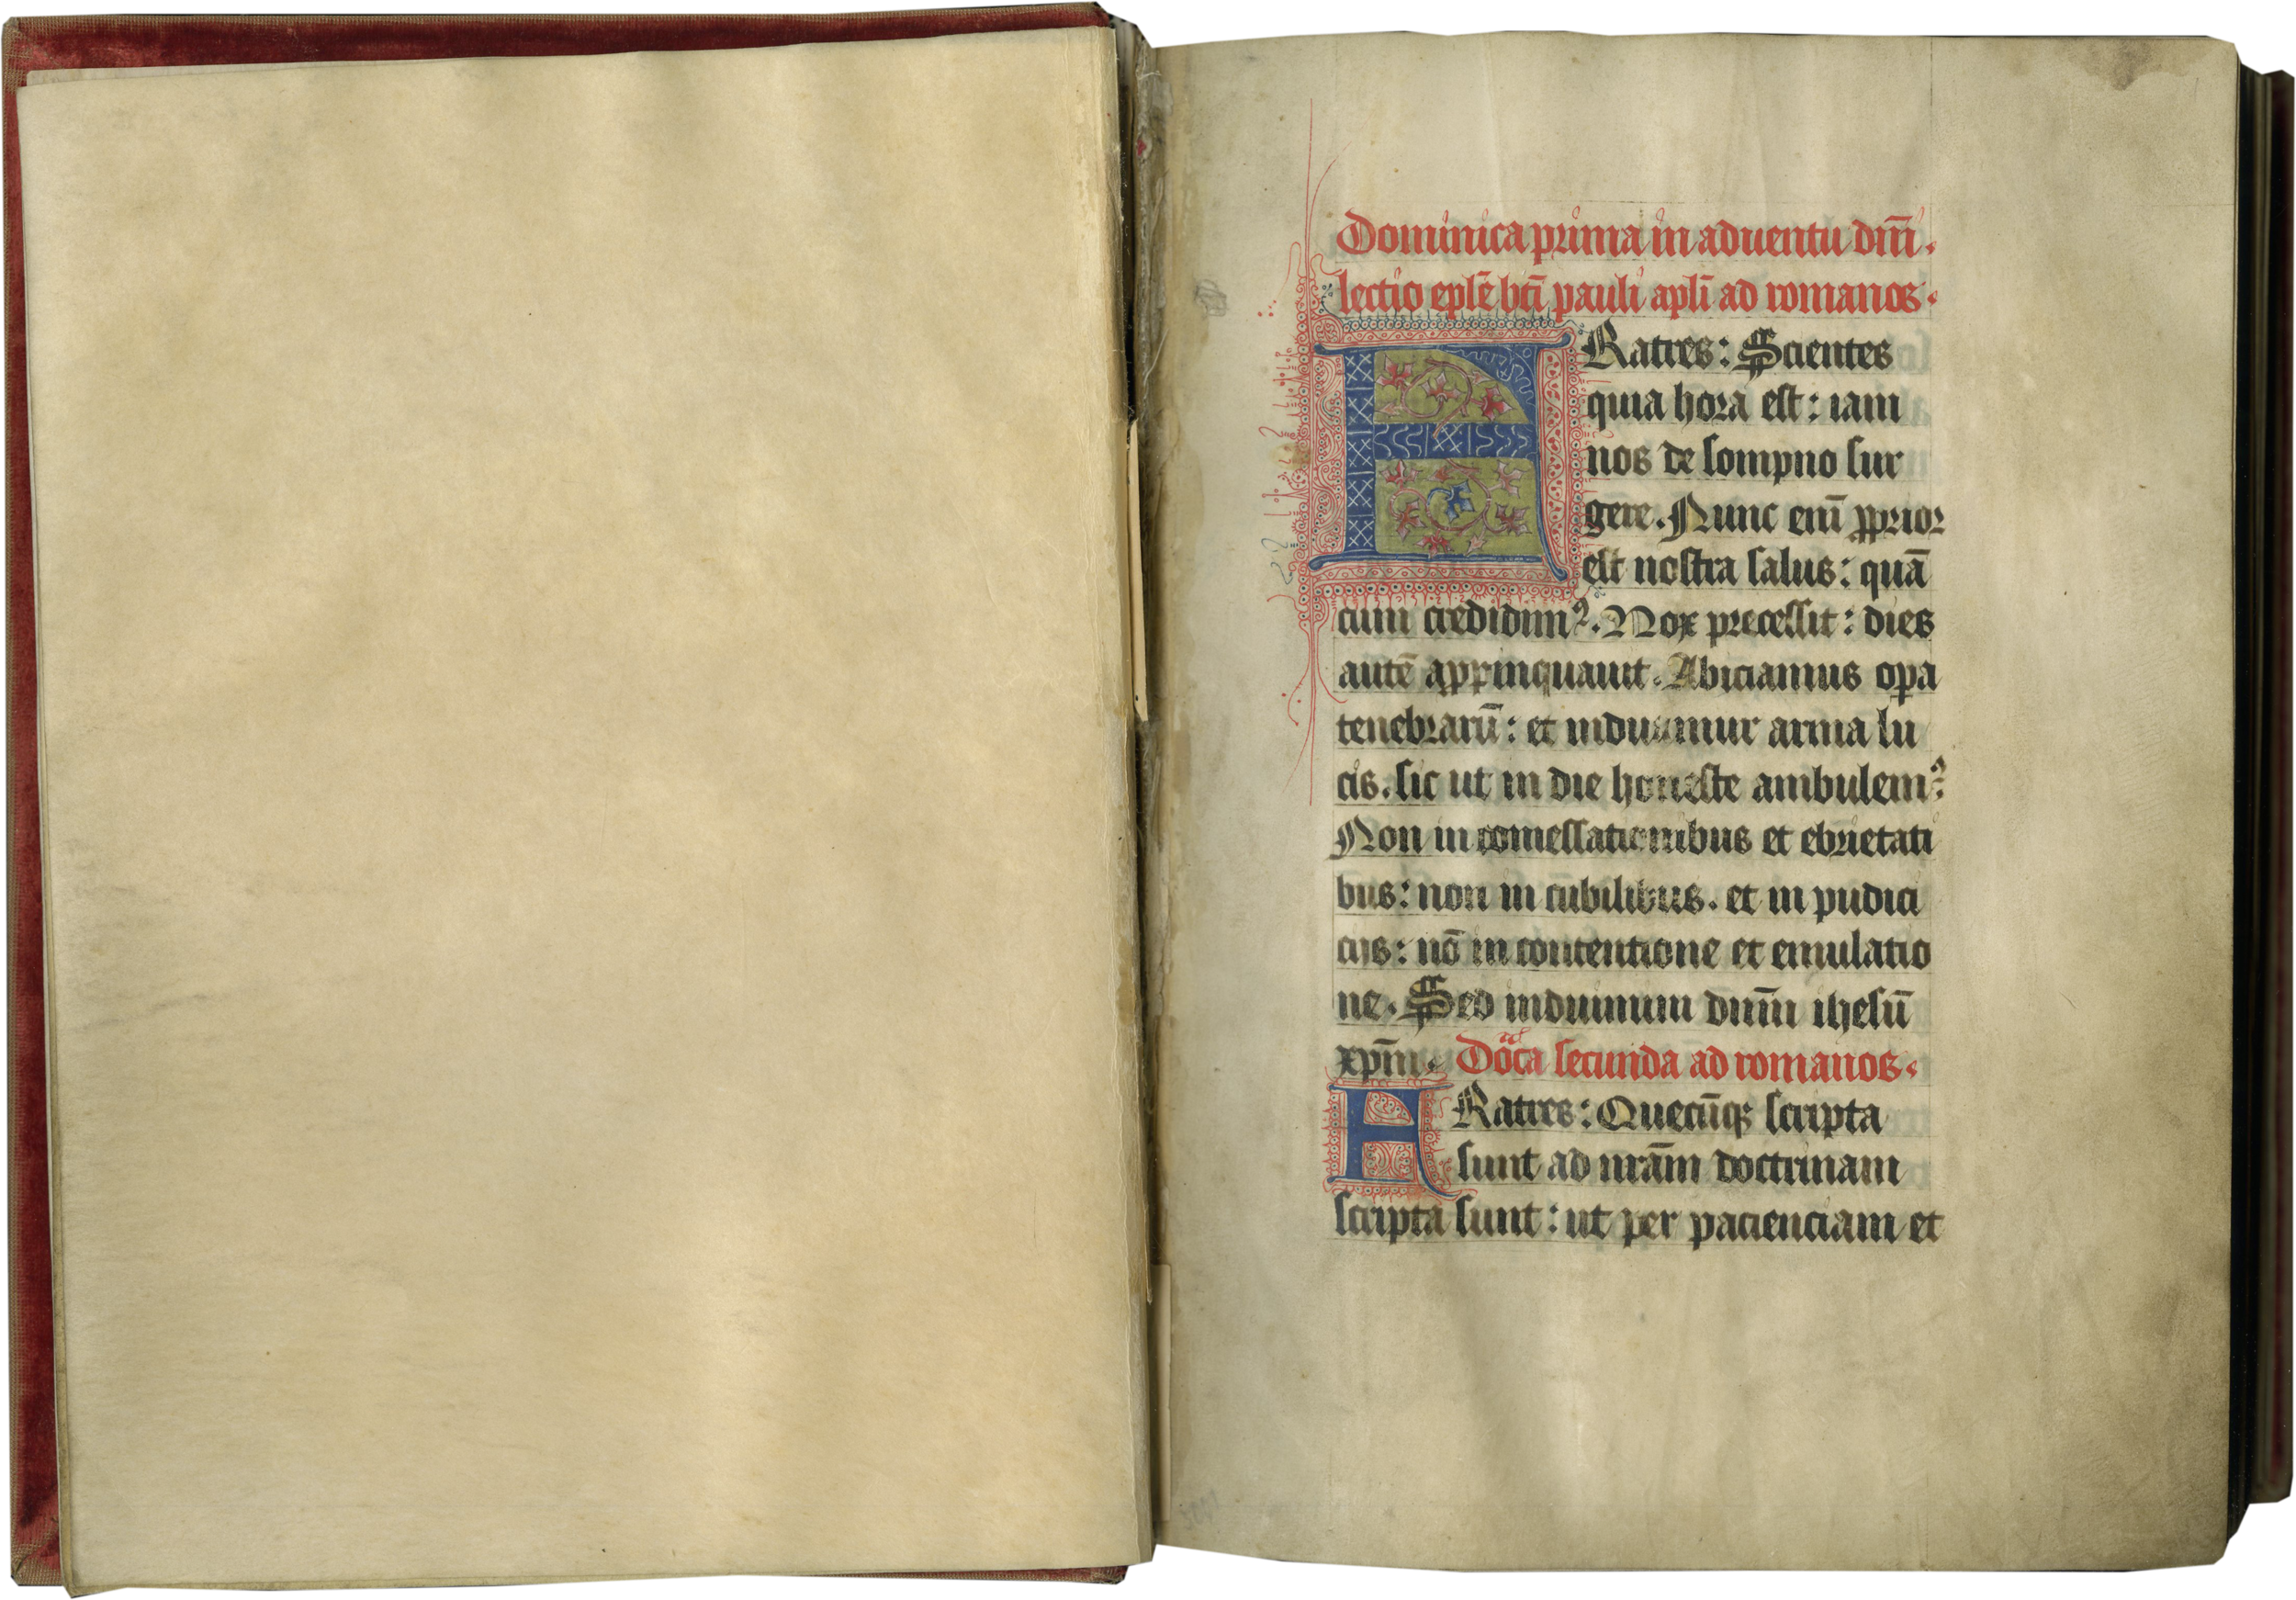 Dominica prima in aduentu dn̄i.
lectio ep̄le bt̄i pauli apl̄i ad romanos.
FRatres: Scientes
quia hora est: iam
nos de sompno sur
gere. Nunc enī ꝓprior
est nostra salus: quā
cum credidimꝰ. Nox precessit: dies
autē appinquauit. Abiciamus opa
tenebrarū: et induamur arma lu
cis. sic ut in die honeste ambulemꝰ:
Non in comessationibus et ebrietati
bus: non in cubilibus. et in pudici
cijs: nō in contentione et emulatio
ne. Sed induimini dn̄m ihesū
xp̄m. Dōca secunda ad romanos.
FRatres: Quecūqꝫ scripta
sunt ad nrām doctrinam
scripta sunt: ut per pacienciam et